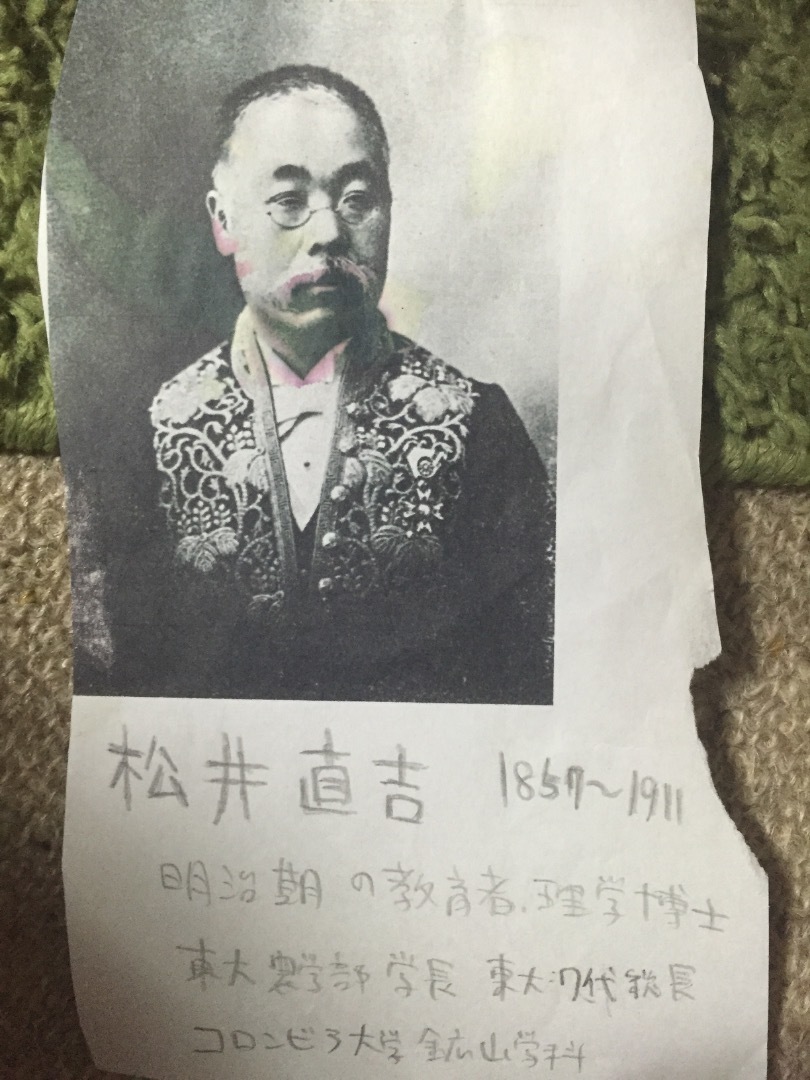 松井直吉 1857〜1911
明治朝の教育者、理学博士
東大農学部学長 東大7代総長
コロンビラ大学鉱山学科